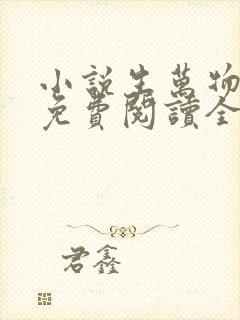 小說生萬物
免費閱讀全
君鑫